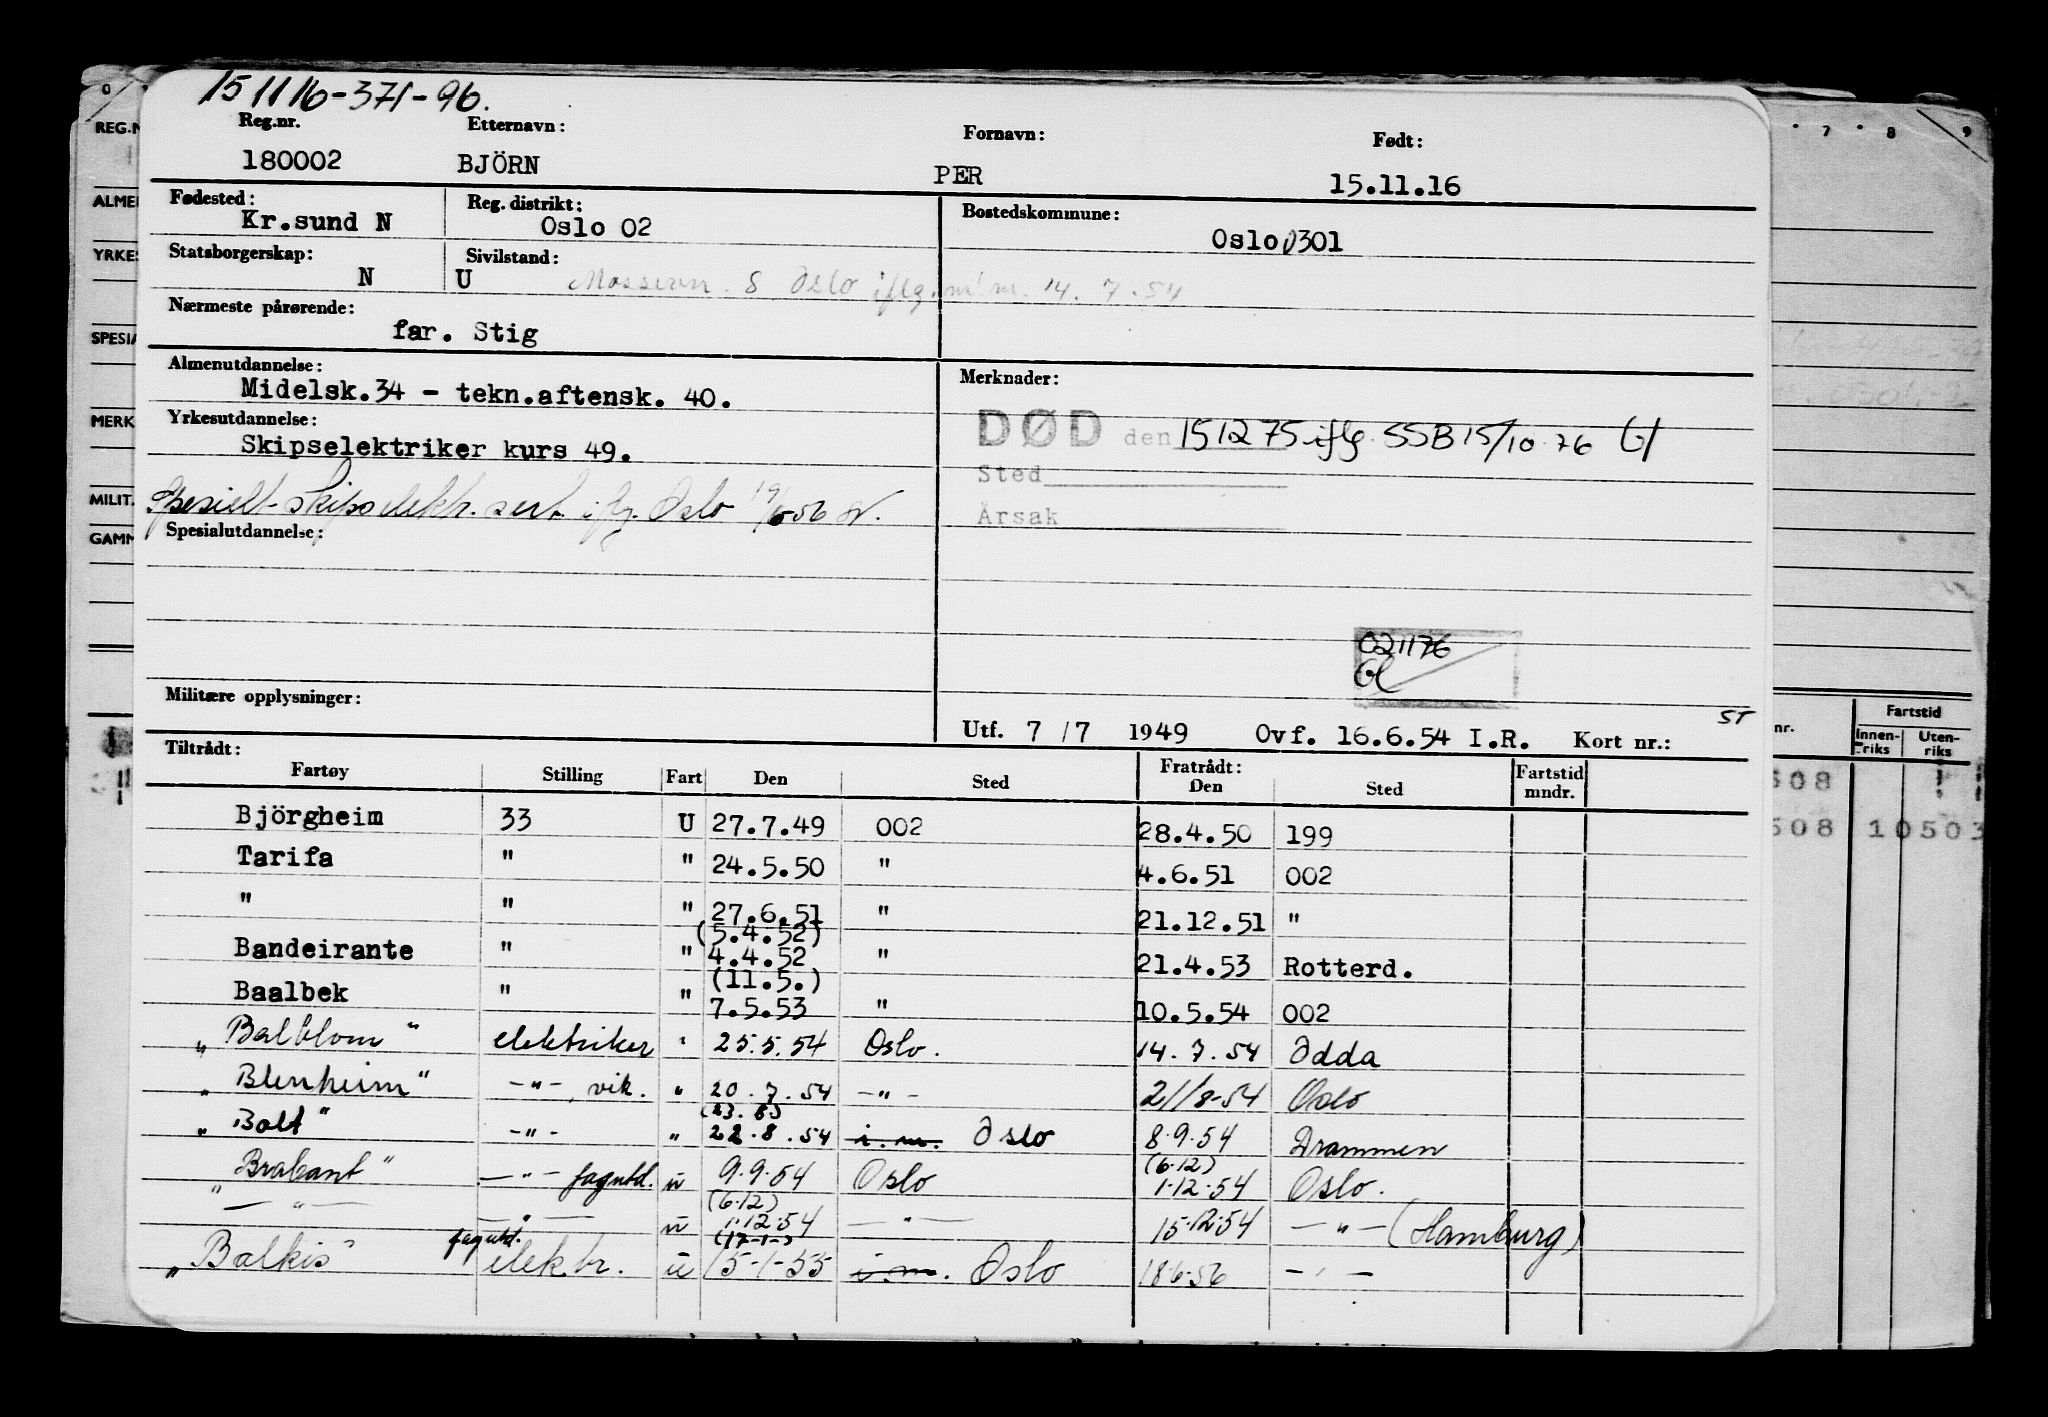 151116-371-96.
Reg.nr. Etternavn: Fornavn: Født:
180002 BJÖRN PER 15.11.16
Fødested: Reg. distrikt: Bostedskommune:
Kr.sund N Oslo 02 Oslo 0301
Statsborgerskap: Sivilstand:
N U
S Oslo iflg. m.m. 14.7.54
Nærmeste pårørende:
far. Stig
Almenutdannelse: Merknader:
Midelsk.34 - tekn.aftensk. 40.
Yrkesutdannelse: DØD den 151275 iflg. SSB 15/10-76
Skipselektriker kurs 49.
Sted
Spesielt skipselektr. sert. iflg. Oslo
Årsak
Spesialutdannelse:
021176
Militære opplysninger:
Utf. 7/7 1949 Ovf. 16.6.54 I.R. Kort nr.: ST
Tiltrådt: Fratrådt:
Fartøy Stilling Fart Den Sted Den Sted Fartstid mndr.
Björgheim 33 U 27.7.49 002 28.4.50 199
Tarifa " " 24.5.50 " 4.6.51 002
" " " 27.6.51 " 21.12.51 "
(5.4.52)
Bandeirante " " 4.4.52 " 21.4.53 Rotterd.
(11.5.)
Baalbek " " 7.5.53 " 10.5.54 002
"Balblom" elektriker " 25.5.54 Oslo. 14.7.54 Odda
"Blenheim" -"-, vik. " 20.7.54 -"- 21/8-54 Oslo
(23.8)
"Balt" -"- " 22.8.54 i.m. Oslo 8.9.54 Drammen
(6.12)
"Brabant" -"- fagutd. u 9.9.54 Oslo 1.12.54 Oslo.
(6.12)
-"- -"- u 1.12.54 -"- 15.12.54 -"- (Hamburg)
fagutd. (17-1-)
"Balkis" elektr. u 15-1-55 i.m. Oslo 18.6.56 -"-
REG.N
ALMEN
YRKES
SPESIA
MERK
MILIT.
GAMM
7 8 9
nr. Fartstid
Innen-riks Uten-riks
508
508 10503